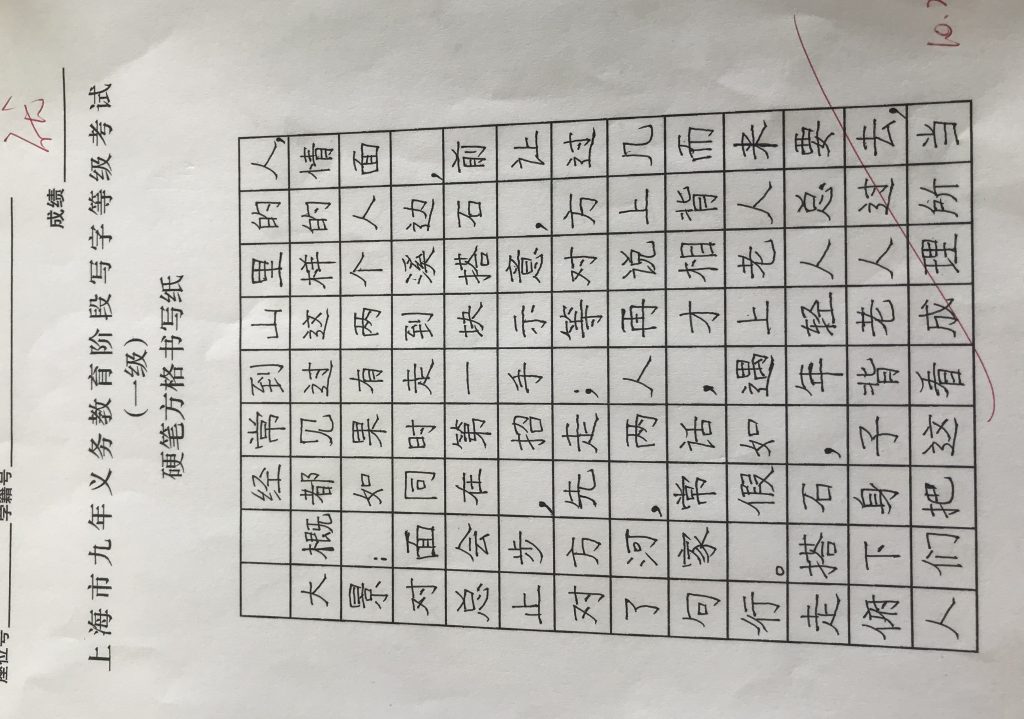 座位号 学籍号
成绩
上海市九年义务教育阶段写字等级考试
(一级)
硬笔方格书写纸
经常到山里的人,
大概都见过这样的情
景:如果有两个人面
对面同时走到溪边,
总会在第一块搭石前
止步,招手示意,让
对方先走;等对方过
了河,两人再说上几
句家常话,才相背而
行。假如遇上老人来
走搭石,年轻人总要
俯下身子背老人过去,
人们把这看成理所当